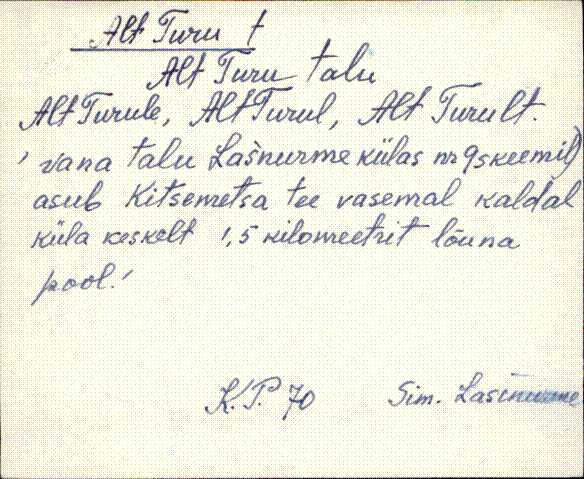 Alt Turu t
Alt Turu talu
Alt Turule, Alt Turul, Alt Turult.
' vana talu Lašnurme külas nr 9 skeemil)
asub Kitsemetsa tee vasemal kaldal
küla keskelt 1,5 kilomeetrit lõuna
pool.'
K.P. 70 Sim. Lasinurme